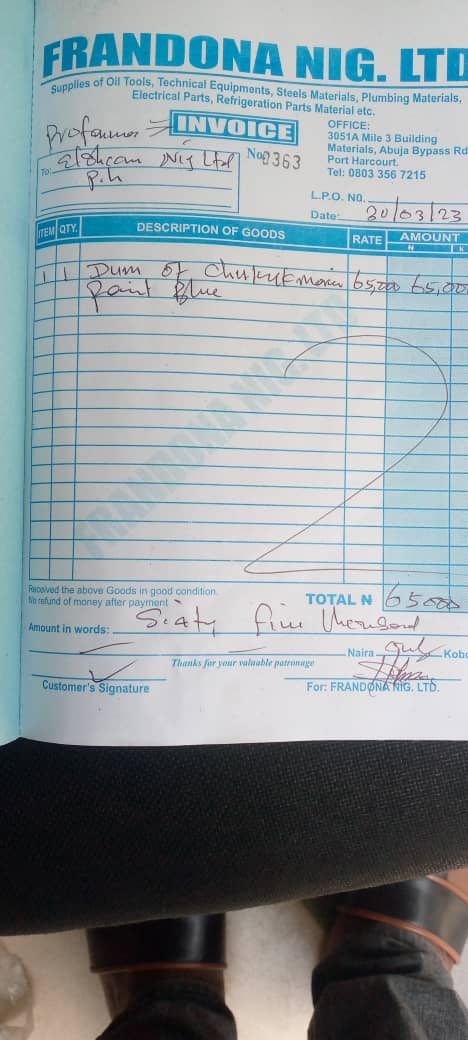 FRANDONA NIG. LTD
Supplies of Oil Tools, Technical Equipments, Steels Materials, Plumbing Materials,
Electrical Parts, Refrigeration Parts Material etc.
INVOICE
OFFICE:
3051A Mile 3 Building
Materials, Abuja Bypass Rd
Port Harcourt.
Tel: 0803 356 7215
To: Nig Ltd
P.h
No 0363
L.P.O. NO.
Date: 30/03/23
ITEM QTY. DESCRIPTION OF GOODS RATE AMOUNT
N k
1 1 Dum of marin 65,000 65,000
Paint Blue
FRANDONA NIG. LTD
Received the above Goods in good condition.
No refund of money after payment
TOTAL N 65000
Amount in words: Sixty five thousand
Naira only Kobo
Thanks for your valuable patronage
Customer's Signature
For: FRANDONA NIG. LTD.